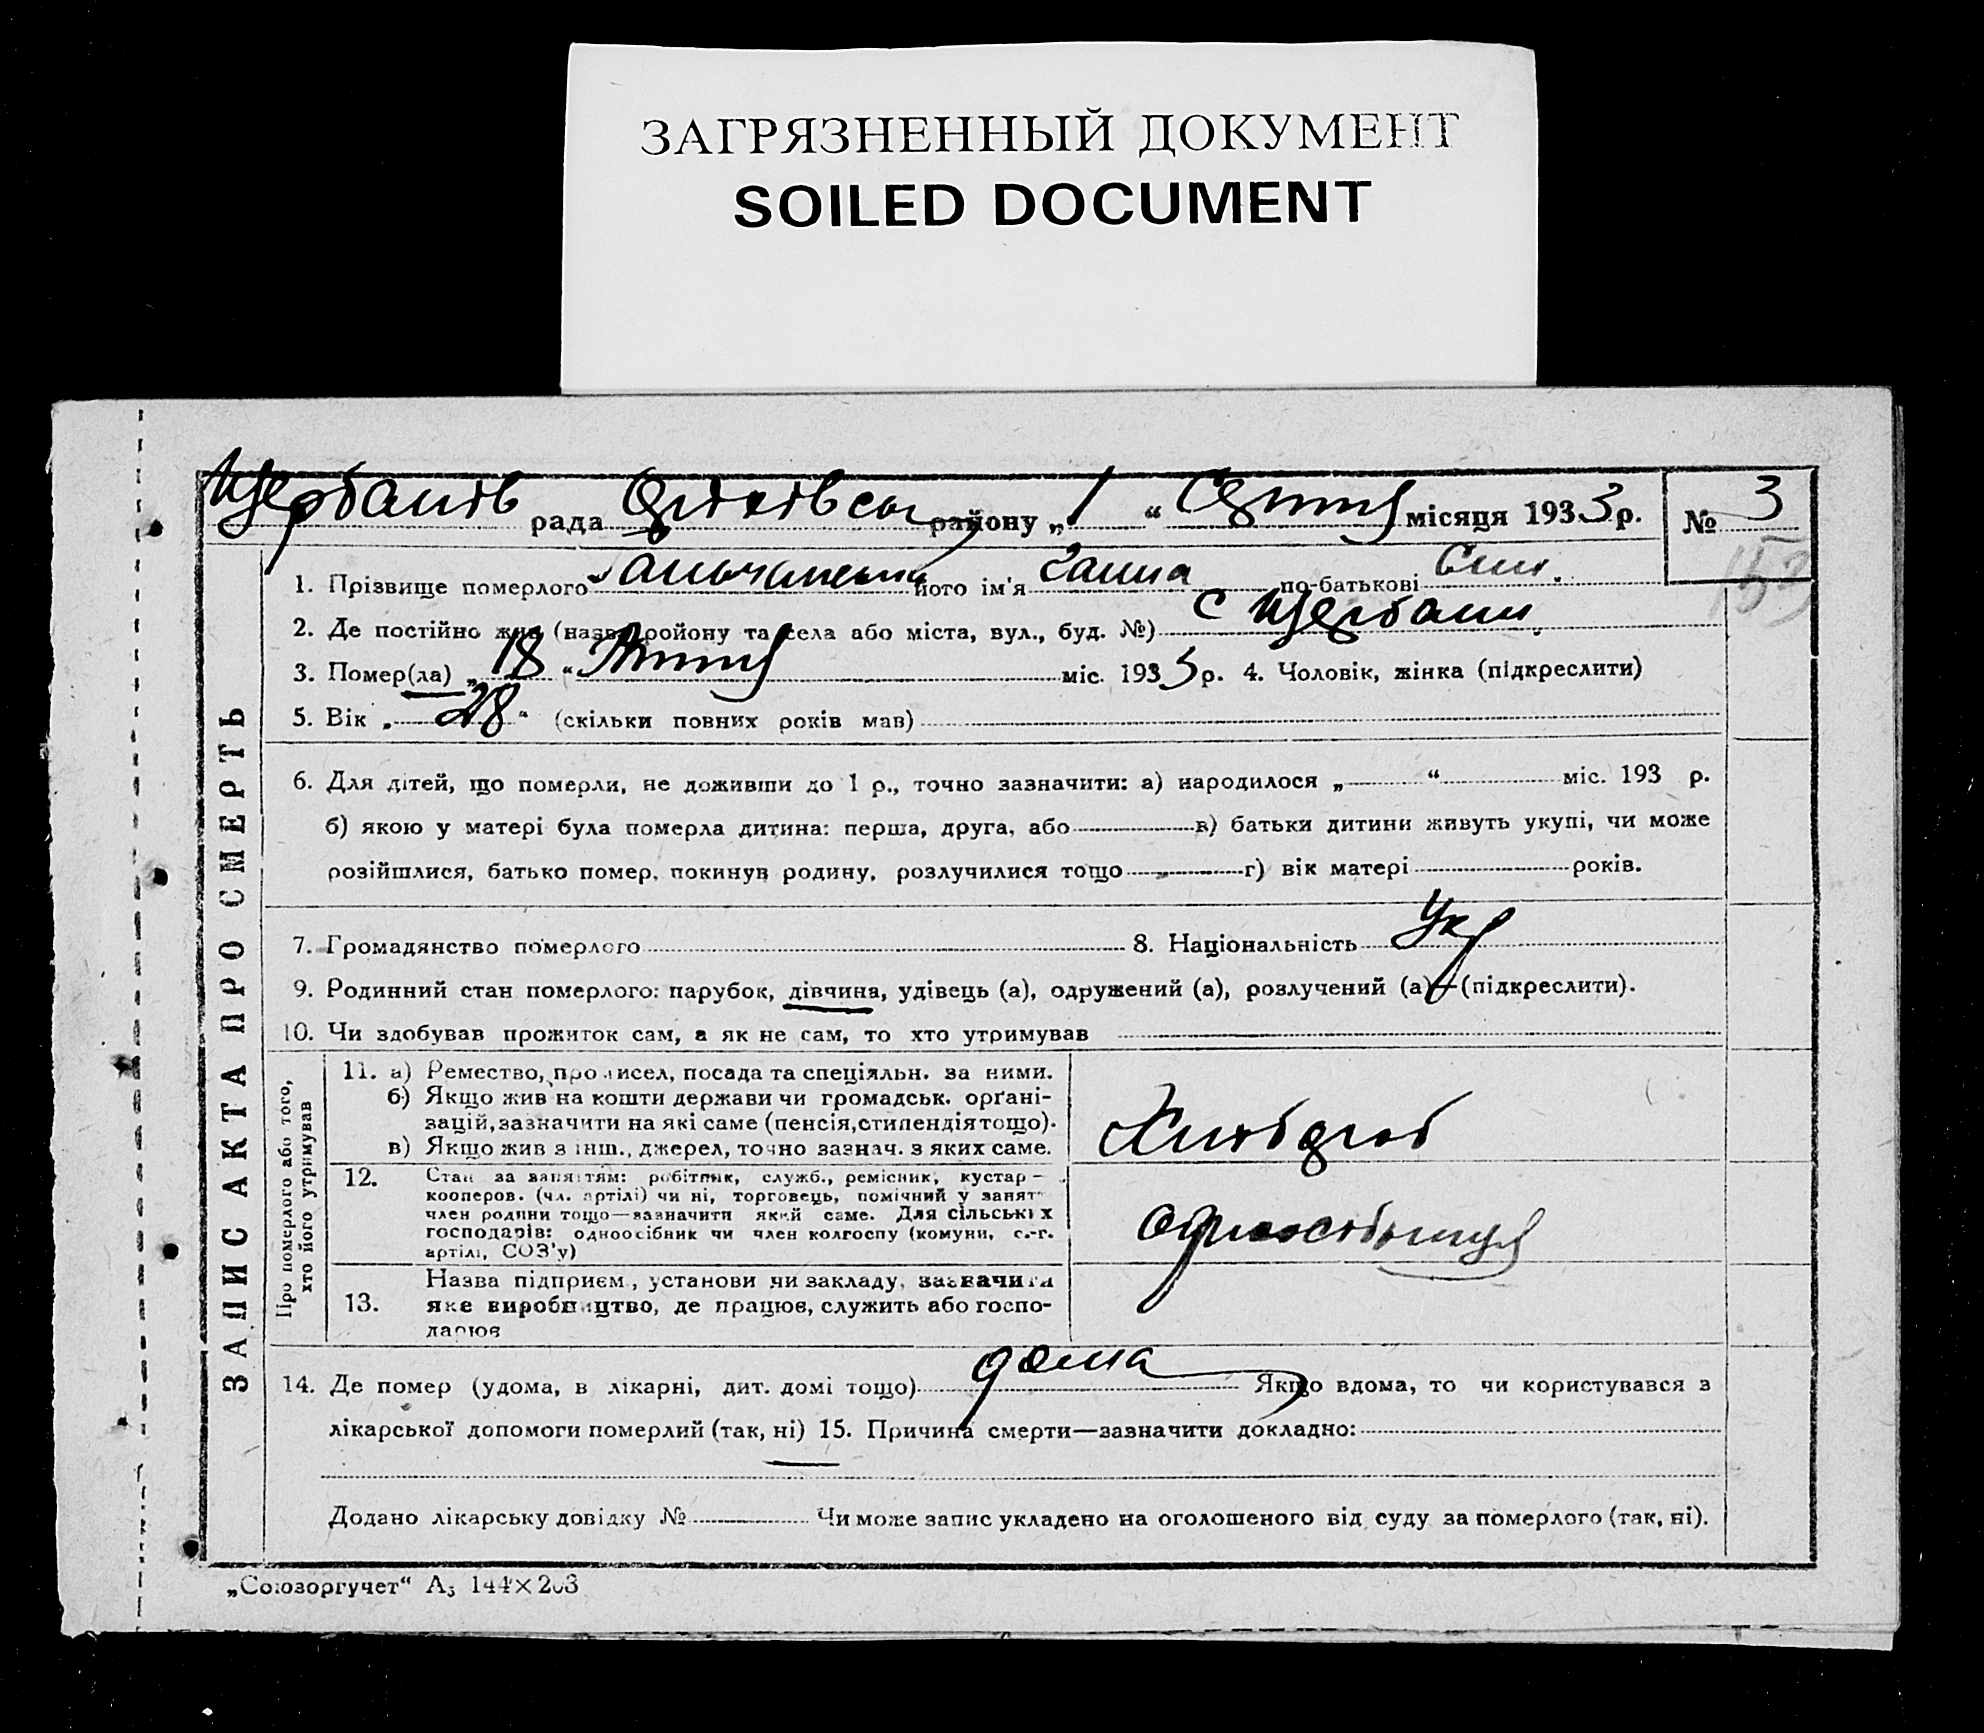 ЗАГРЯЗНЕННЫЙ ДОКУМЕНТ
SOILED DOCUMENT
рада району „1“ місяця 1933 р. № 3
1. Прізвище померлого його ім'я Ганна по-батькові
2. Де постійно жив (назва ройону та села або міста, вул., буд. №) с Щербани
3. Помер(ла) „18“ міс. 1933 р. 4. Чоловік, жінка (підкреслити)
5. Вік „28“ (скільки повних років мав)
6. Для дітей, що померли, не доживши до 1 р., точно зазначити: а) народилося „ “ міс. 193 р.
б) якою у матері була померла дитина: перша, друга, або в) батьки дитини живуть укупі, чи може
розійшлися, батько помер, покинув родину, розлучилися тощо г) вік матері років.
7. Громадянство померлого 8. Національність Укр
9. Родинний стан померлого: парубок, дівчина, удівець (а), одружений (а), розлучений (а)—(підкреслити).
10. Чи здобував прожиток сам, а як не сам, то хто утримував
ЗАПИС АКТА ПРО СМЕРТЬ
Про померлого або того,
хто його утримував
11. а) Ремество, промисел, посада та спеціяльн. за ними.
б) Якщо жив на кошти держави чи громадськ. орґані-
зацій, зазначити на які саме (пенсія, стипендія тощо).
в) Якщо жив з інш., джерел, точно зазнач. з яких саме.
Хлібороб
12. Стан за заняттям: робітник, служб., ремісник, кустар—
кооперов. (чл. артілі) чи ні, торговець, помічний у занят
член родини тощо—зазначити який саме. Для сільських
господарів: одноосібник чи член колгоспу (комуни, с.-г.
артілі, СОЗ'у)
13. Назва підприєм., установи чи закладу, зазначити
яке виробництво, де працює, служить або госпо-
дарює
14. Де помер (удома, в лікарні, дит. домі тощо) дома Якщо вдома, то чи користувався з
лікарської допомоги померлий (так, ні) 15. Причина смерти—зазначити докладно:
Додано лікарську довідку № Чи може запис укладено на оголошеного від суду за померлого (так, ні).
„Союзоргучет“ А₅ 144×203